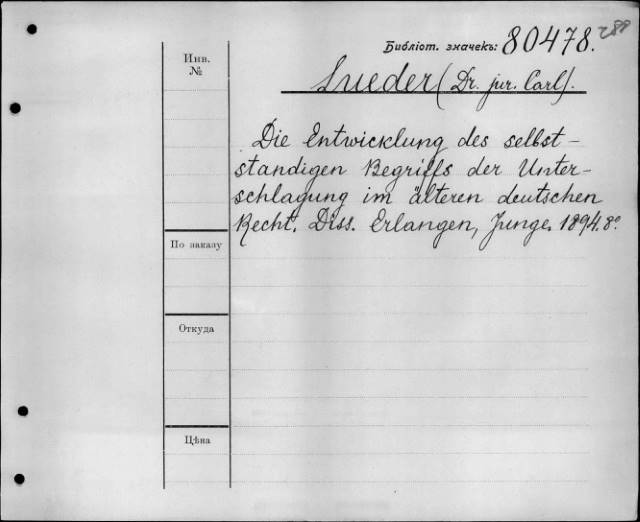 Библіот. значекъ: 80478.
Инв.
№
Lueder (Dr. jur. Carl).
Die Entwicklung des selbst-
ständigen Begriffs der Unter-
schlagung im älteren deutschen
Recht. Diss. Erlangen, Junge. 1894. 8°.
По заказу
Откуда
Цѣна